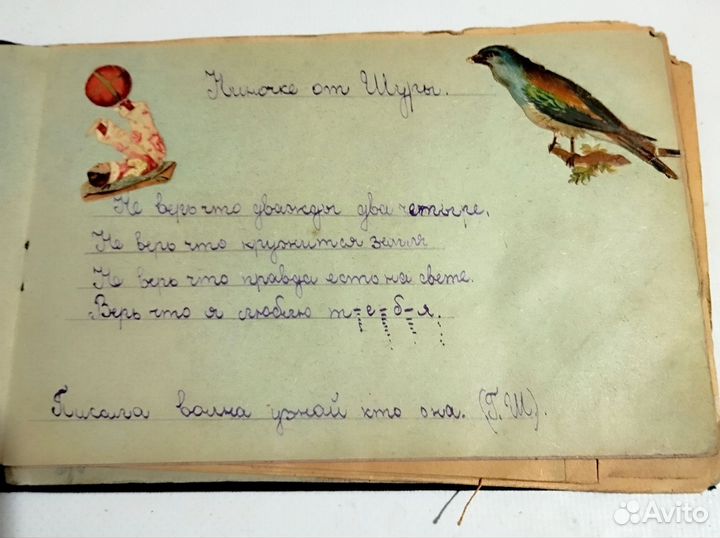 Ниночке от Шуры.
Не верь что дважды два четыре,
Не верь что кружится земля
Не верь что правда есть на свете.
Верь что я люблю т-е-б-я.
Писала волна узнай кто она. (Г. Ш).
Avito